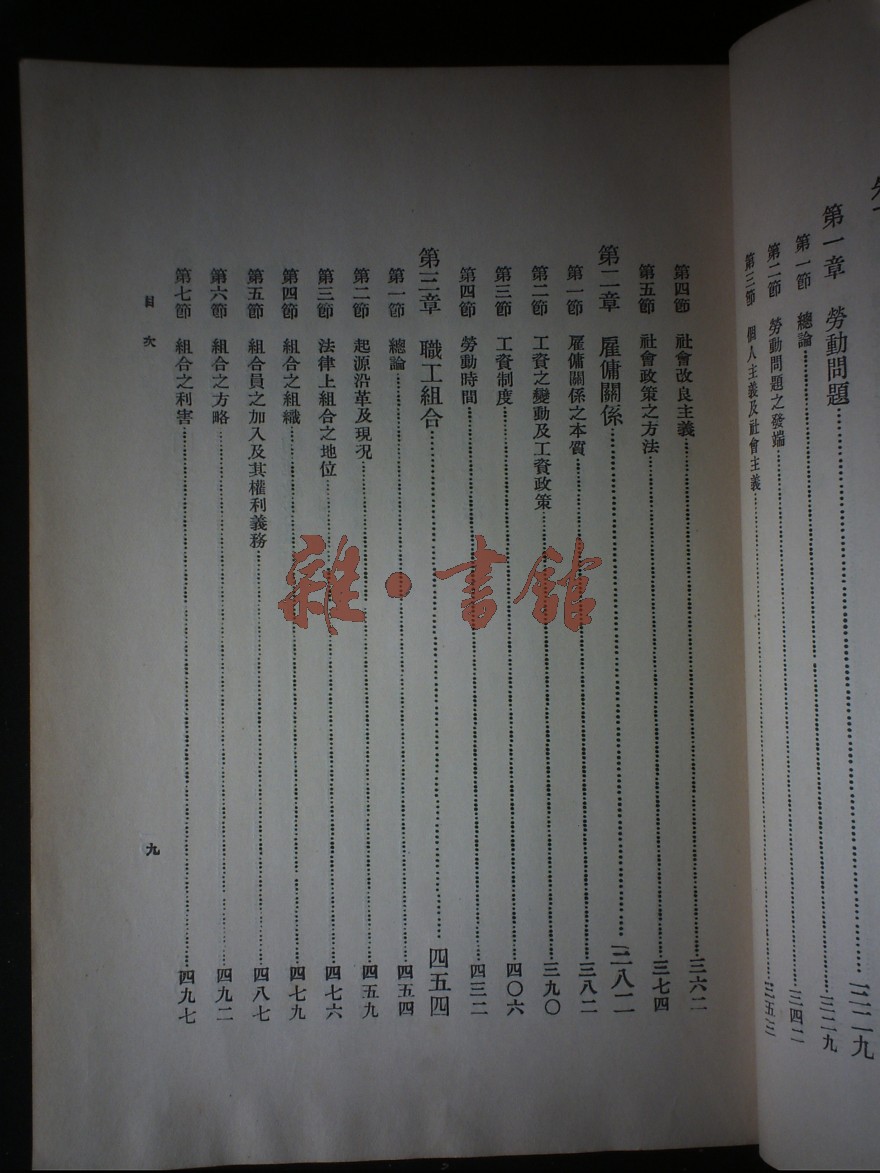 第一章　勞動問題……三二九
第一節　總論……三二九
第二節　勞動問題之發端……三四二
第三節　個人主義及社會主義……三五三
第四節　社會改良主義……三六二
第五節　社會政策之方法……三七四
第二章　雇傭關係……三八二
第一節　雇傭關係之本質……三八二
第二節　工資之變動及工資政策……三九〇
第三節　工資制度……四〇六
第四節　勞動時間……四三二
第三章　職工組合……四五四
第一節　總論……四五四
第二節　起源沿革及現況……四五九
第三節　法律上組合之地位……四七六
第四節　組合之組織……四七九
第五節　組合員之加入及其權利義務……四八七
第六節　組合之方略……四九二
第七節　組合之利害……四九七
目次
九
雜·書館